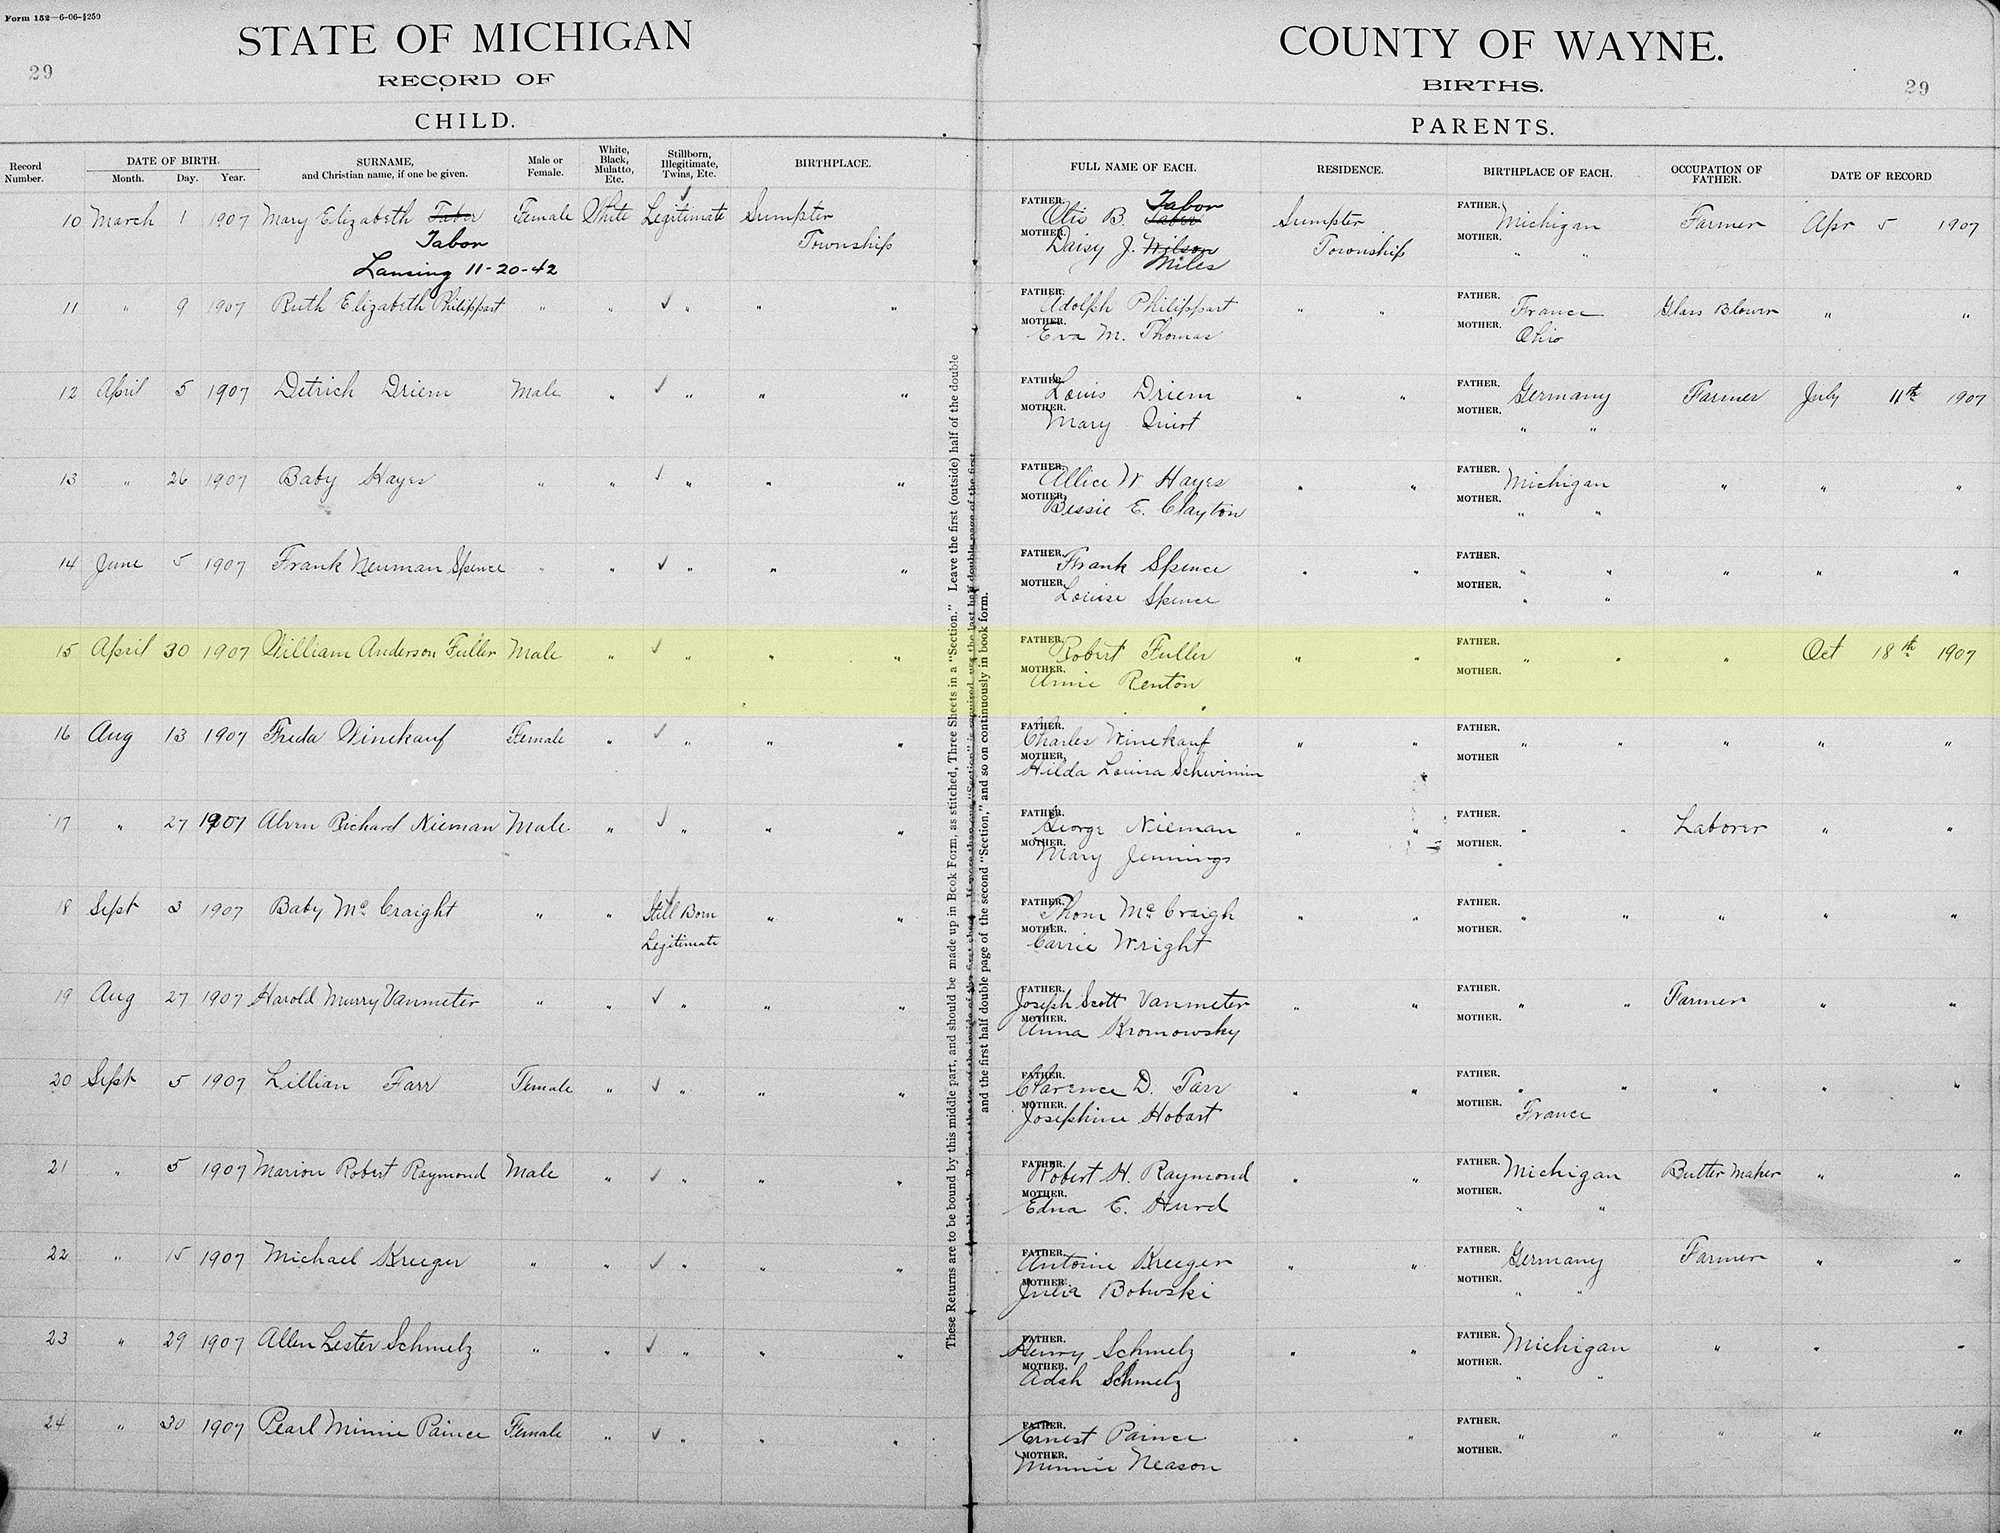 Form 152—6-06-1250
STATE OF MICHIGAN
COUNTY OF WAYNE.
29
RECORD OF
BIRTHS.
29
CHILD.
PARENTS.
Record Number.
DATE OF BIRTH.
Month. Day. Year.
SURNAME, and Christian name, if one be given.
Male or Female.
White, Black, Mulatto, Etc.
Stillborn, Illegitimate, Twins, Etc.
BIRTHPLACE.
FULL NAME OF EACH.
RESIDENCE.
BIRTHPLACE OF EACH.
OCCUPATION OF FATHER.
DATE OF RECORD
10 March 1 1907 Mary Elizabeth Taber Female White Legitimate Sumpter
Tabor Township
Lansing 11-20-42
FATHER. Otis B. Taber Tabor Sumpter FATHER. Michigan Farmer Apr 5 1907
MOTHER. Daisy J. Wilson Township MOTHER. " "
Miles
11 " 9 1907 Ruth Elizabeth Philippart " " ✓ " " "
FATHER. Adolph Philippart " " FATHER. France Glass Blower " "
MOTHER. Eva M. Thomas MOTHER. Ohio
12 April 5 1907 Detrich Driem Male " ✓ " " "
FATHER. Louis Driem " " FATHER. Germany Farmer July 11th 1907
MOTHER. Mary Quirt MOTHER. " "
13 " 26 1907 Baby Hayes " " ✓ " " "
FATHER. Allice W. Hayes " " FATHER. Michigan " " "
MOTHER. Bessie E. Clayton MOTHER. " "
14 June 5 1907 Frank Neuman Spence " " ✓ " " "
FATHER. Frank Spence " " FATHER. " " " " "
MOTHER. Louise Spence MOTHER. " "
15 April 30 1907 William Anderson Fuller Male " ✓ " " "
FATHER. Robert Fuller " " FATHER. " " " Oct 18th 1907
MOTHER. Annie Renton MOTHER.
16 Aug 13 1907 Freda Winekauf Female " ✓ " " "
FATHER. Charles Winekauf " " FATHER. " " " " "
MOTHER. Hilda Louisa Schwimm MOTHER
17 " 27 1907 Alvin Richard Nieman Male " ✓ " " "
FATHER. George Nieman " " FATHER. " " Laborer " "
MOTHER. Mary Jennings MOTHER.
18 Sept 3 1907 Baby McCraight " " Still Born " "
Legitimate
FATHER. Thom McCraigh " " FATHER. " " " " "
MOTHER. Carrie Wright MOTHER.
19 Aug 27 1907 Harold Murry Vanmeter " " ✓ " " "
FATHER. Joseph Scott Vanmeter " " FATHER. " " Farmer " "
MOTHER. Anna Kromowsky MOTHER.
20 Sept 5 1907 Lillian Farr Female " ✓ " " "
FATHER. Clarence D. Farr " " FATHER. " " " " "
MOTHER. Josephine Hobart MOTHER. France
21 " 5 1907 Marion Robert Raymond Male " ✓ " " "
FATHER. Robert H. Raymond " " FATHER. Michigan Butter Maker " "
MOTHER. Edna E. Hurd MOTHER. " "
22 " 15 1907 Michael Kreeger " " ✓ " " "
FATHER. Antoine Kreeger " " FATHER. Germany Farmer " "
MOTHER. Julia Bobwski MOTHER. " "
23 " 29 1907 Allen Lester Schmelz " " ✓ " " "
FATHER. Henry Schmelz " " FATHER. Michigan " " "
MOTHER. Adah Schmelz MOTHER. " "
24 " 30 1907 Pearl Minnie Paince Female " ✓ " " "
FATHER. Ernest Paince " " FATHER. " " " " "
MOTHER. Minnie Neason MOTHER.
These Returns are to be bound by this middle part, and should be made up in Book Form, as stitched, Three Sheets in a "Section." Leave the first (outside) half of the double
and the first half double page of the second "Section," and so on continuously in book form.